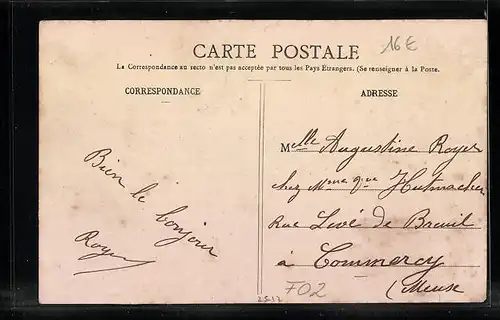 16€
CARTE POSTALE
La Correspondance au recto n'est pas acceptée par tous les Pays Étrangers. (Se renseigner à la Poste.
CORRESPONDANCE
ADRESSE
Melle Augustine Royer
chez Mme que Hutmacher
Rue Levé de Breuil
à Commercy
(Meuse
Bien le bonjour
Royer
2512
F02